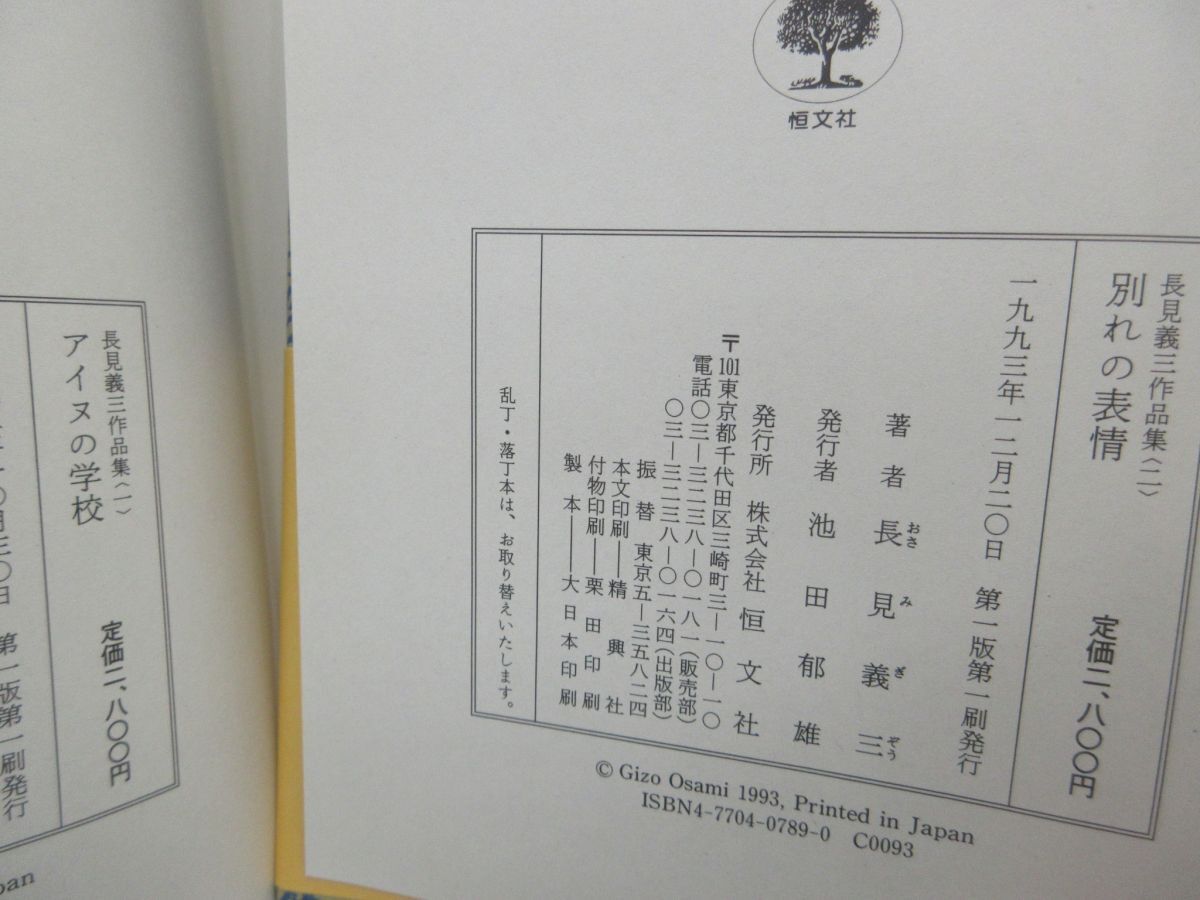 恒文社
長見義三作品集〈二〉
別れの表情
定価二、八〇〇円
一九九三年一二月二〇日 第一版第一刷発行
著者 長見義三
おさ み ぎ ぞう
発行者 池田郁雄
発行所 株式会社 恒文社
〒101東京都千代田区三崎町三―一〇―一〇
電話〇三―三二三八―〇一八一(販売部)
〇三―三二三八―〇一六四(出版部)
振替 東京五―三五八二四
本文印刷――精興社
付物印刷――栗田印刷
製本――大日本印刷
乱丁・落丁本は、お取り替えいたします。
© Gizo Osami 1993, Printed in Japan
ISBN4-7704-0789-0 C0093
長見義三作品集〈一〉
アイヌの学校
定価二、八〇〇円
〇月三〇日 第一版第一刷発行
pan